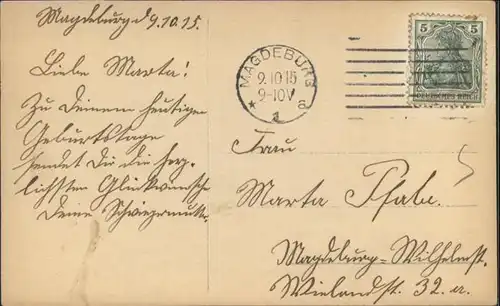 Magdeburg d 9.10.15.
Liebe Marta!
Zu Deinem heutigen
Geburtstage
sendet Dir die herz-
lichsten Glückwünsche
Deine Schwiegermutter
MAGDEBURG
9.10.15
9-10V
* 1 a
5 5
DEUTSCHES REICH
Frau
5
Marta Pfabe.
Magdeburg-Wilhelmst.
Wielandst. 32. a.